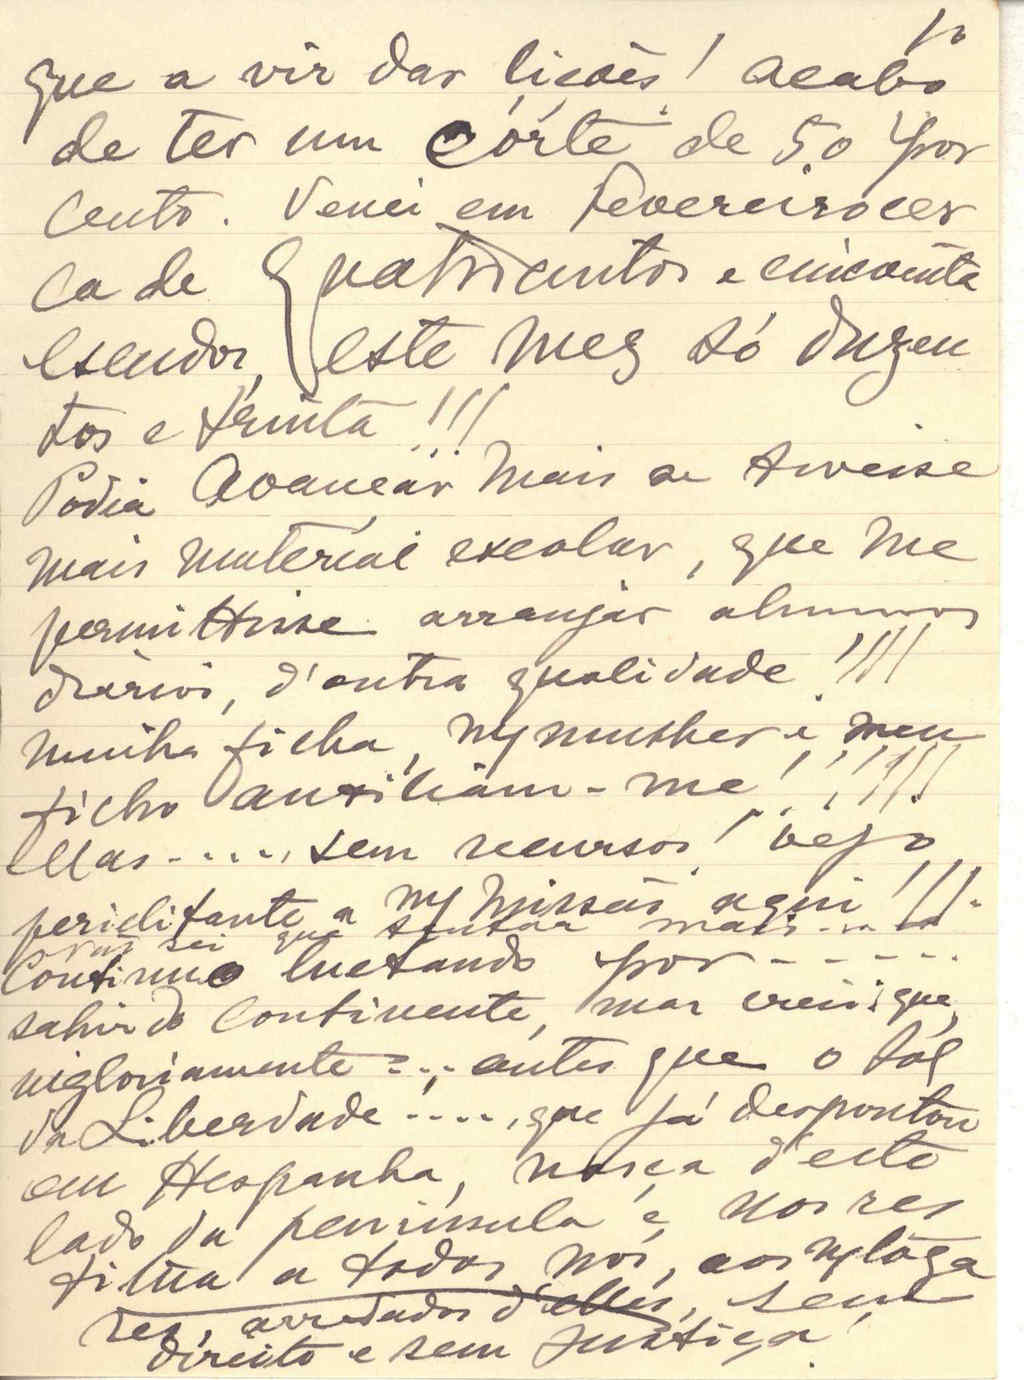 que a vir dar lições! Acabo
de ter um córte de 50 por
cento. Venci em Fevereiro cer
ca de Quatrocentos e cincoenta
escudos, este mez só duzen
tos e trinta!!!
Podia Avançar mais se tivesse
mais material escolar, que me
permittisse arranjar alumnos
diarios, d'outra qualidade!!!!
minha filha, mulher e meu
filho auxiliam-me!!!!!!
Ellas...., sem recursos! vejo
periclitante a missão aqui!!!.
pois sei que mais....
Continuo luctando por - - - - -
sahir do Continente, mas creio que,
ingloriamente..., antes que o sól
da Liberdade....., que já despontou
em Hespanha, nasça d'este
lado da peninsula e, nos res
titua a todos nós, aos lóga
res, arredados d'elles, sem
direito e sem justiça!